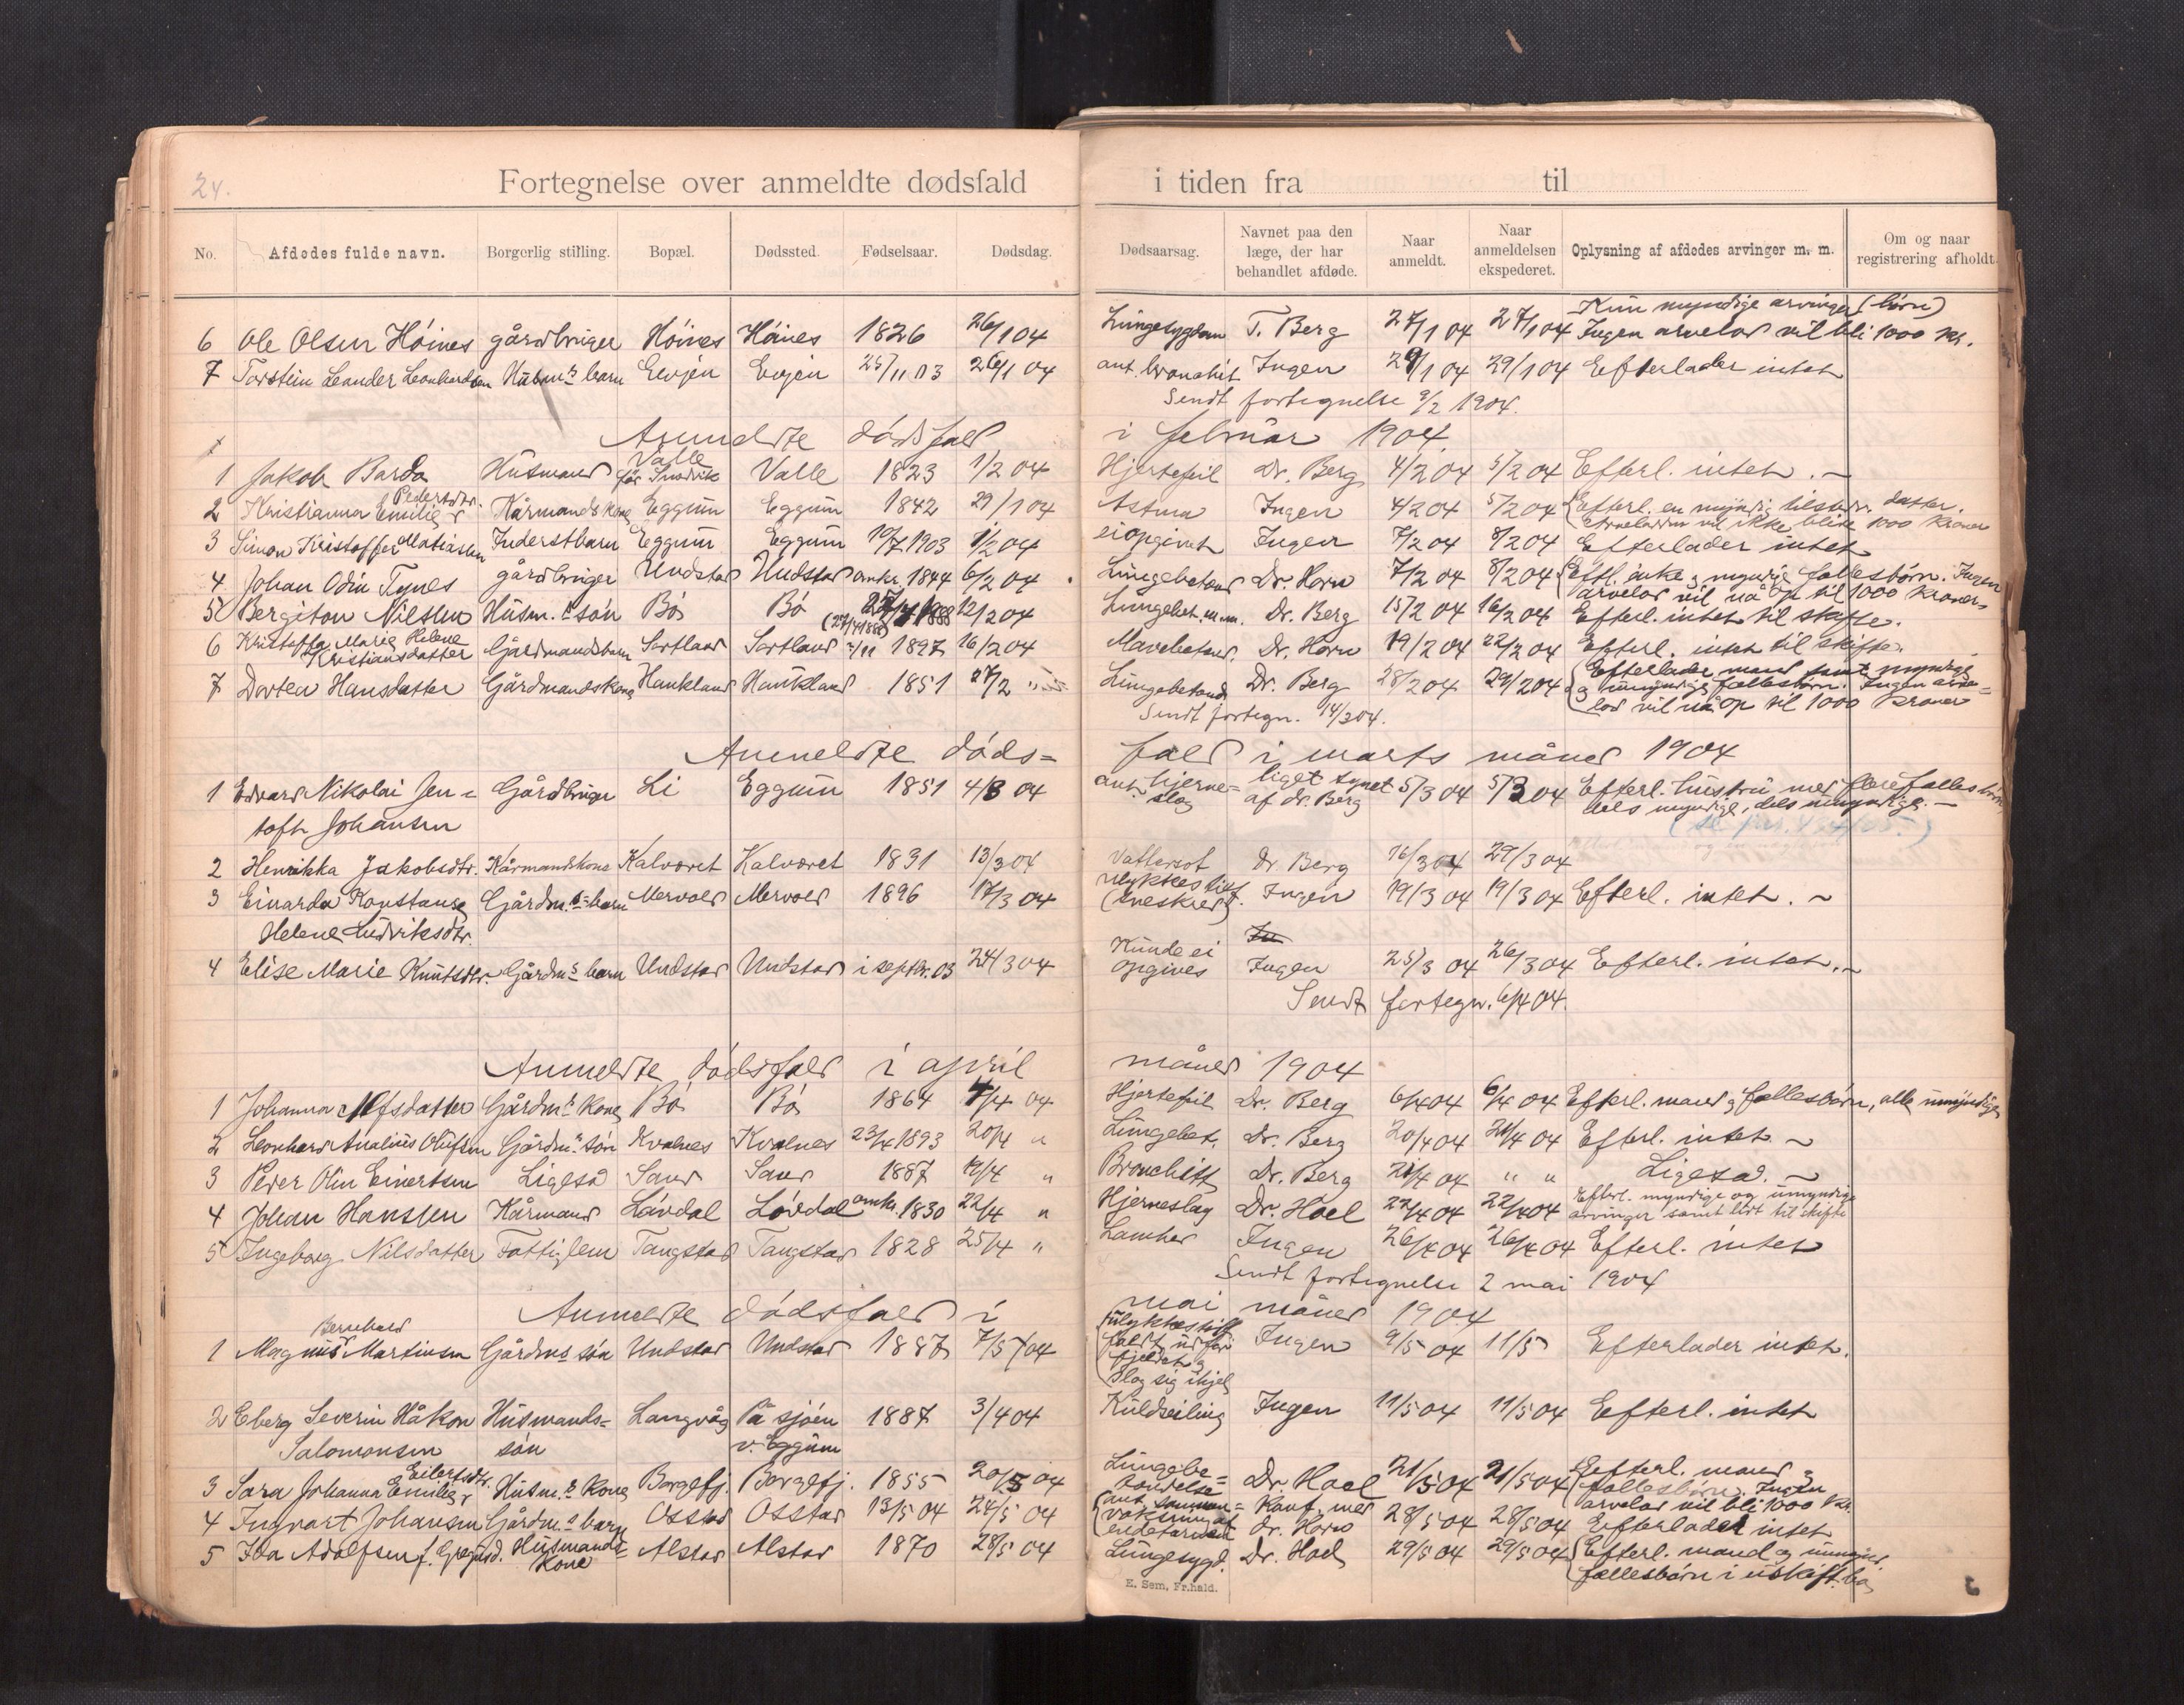 24.
Fortegnelse over anmeldte dødsfald i tiden fra til
No. Afdødes fulde navn. Borgerlig stilling. Bopæl. Dødssted. Fødselsaar. Dødsdag. Dødsaarsag. Navnet paa den læge, der har behandlet afdøde. Naar anmeldt. Naar anmeldelsen ekspederet. Oplysning af afdødes arvinger m. m. Om og naar registrering afholdt.
6 Ole Olsen Höines gårdbruger Höines Höines 1826 26/1 04 Lungesygdom T. Berg 27/1 04 27/1 04 Kun myndige arvinger (börn) Ingen arvelod vil bli 1000 kr.
7 Torstein Leander Leonhardsen Husm.s barn Evjen Evjen 25/11 03 26/1 04 ant. bronchit Ingen 29/1 04 29/1 04 Efterlader intet
Sendt fortegnelse 9/2 1904.
Anmeldte dödsfald i februar 1904
1 Jakob Barda Husmand Valle Valle 1823 1/2 04 Hjertefeil Dr. Berg 4/2 04 5/2 04 Efterl. intet. –
2 Kristianna Emilie Pedersdtr. Kårmands kone Eggum Eggum 1842 29/1 04 Astma Ingen 4/2 04 5/2 04 Efterl. en myndig datter. arvelodden vil ikke blive 1000 kroner
3 Simon Kristoffer Matiassen Inderstbarn Eggum Eggum 10/7 1903 1/2 04 ei opgivet Ingen 7/2 04 8/2 04 Efterlader intet
4 Johan Odin Tynes gårdbruger Undstad Undstad omkr. 1844 6/2 04 Lungebetænd Dr. Horn 7/2 04 8/2 04 Eftl. enke og myndige fællesbörn. Ingen arvelod vil nå op til 1000 kroner
5 Bergiton Nilsen Husm.s sön Bö Bö 27/4 1888 (27/4 1888) 12/2 04 Lungebet. m.m. Dr. Berg 15/2 04 16/2 04 Efterl. intet til skifte.
6 Kristoffa Marie Helene Kristiansdatter Gårdmandsbarn Sortland Sortland /11 1897 16/2 04 Mavebetænd. Dr. Horn 19/2 04 22/2 04 Efterl. intet til skifte.
7 Dortea Hansdatter Gårdmandskone Haukland Haukland 1851 27/2 " Lungebetænd Dr. Berg 28/2 04 29/2 04 Efterlader mand samt myndige og umyndige fællesbörn. Ingen arvelod vil nå op til 1000 kroner
Sendt fortegn. 14/3 04.
Anmeldte dödsfald i marts måned 1904
1 Edvard Nikolai Jentoft Johansen Gårdbruger Li Eggum 1851 4/3 04 ant. hjerneslag liget synet af dr. Berg 5/3 04 5/3 04 Efterl. hustru med flere fælles börn dels myndige, dels umyndige. –
2 Henrikka Jakobsdtr. Kårmandskone Kalvöret Kalvöret 1831 13/3 04 Vattersot dr. Berg 16/3 04 29/3 04
3 Einarda Konstanse Helene Ludviksdtr. Gårdm.s-barn Mervold Mervold 1896 17/3 04 ulykkestilf. (sneskred) Ingen 19/3 04 19/3 04 Efterl. intet. –
4 Elise Marie Knutsdtr. Gårdm.s barn Undstad Undstad i septbr. 03 24/3 04 Kunde ei opgives Ingen 25/3 04 26/3 04 Efterl. intet. –
Sendt fortegn. 6/4 04.
Anmeldte dödsfald i april måned 1904
1 Johanna Alfsdatter Gårdm.s kone Bö Bö 1864 4/4 04 Hjertefeil Dr. Berg 6/4 04 6/4 04 Efterl. mand og fællesbörn, alle umyndige
2 Leonhard Analius Olufsen Gårdm.s sön Kvalnes Kvalnes 23/4 1893 20/4 " Lungebet. Dr. Berg 20/4 04 21/4 04 Efterl. intet –
3 Peder Olin Einertsen Ligeså Sand Sand 1887 19/4 " Bronchitt Dr. Berg 21/4 04 " " Ligeså. –
4 Johan Hanssen Kårmand Lövdal Lövdal omkr. 1830 22/4 " Hjerneslag Dr. Hoel 22/4 04 22/4 04 Efterl. myndige og umyndige arvinger samt lidt til skifte
5 Ingeborg Nilsdatter Fattiglem Tangstad Tangstad 1828 25/4 " Lamhed Ingen 26/4 04 26/4 04 Efterl. intet
Sendt fortegnelse 2 mai 1904
Anmeldte dödsfald i mai måned 1904
1 Magnus Bernhard Martinsen Gårdms sön Undstad Undstad 1887 7/5 04 Ulykkestilf (faldt udfor fjeldet og slog sig ihjel Ingen 9/5 04 11/5 Efterlader intet.
2 Eberg Severin Håkon Salomonsen Husmandssön Langvåg På sjöen v. Eggum 1887 3/4 04 Kuldseiling Ingen 11/5 04 11/5 04 Efterl. intet
3 Sara Johanna Emilie Eilertsdtr. Husm.s kone Borgefj. Borgefj. 1855 20/5 04 Lungebetændelse Dr. Hoel 21/5 04 21/5 04 Efterl. mand og fællesbörn. Ingen arvelod vil bli 1000 kr.
4 Ingvart Johansen Gårdm.s barn Osstad Osstad 13/5 04 24/5 04 ant. sammenvoksning af endetarmen Konf. med dr. Horn 28/5 04 28/5 04 Efterlader intet
5 Ida Adolfsen f. Husmands-kone Alstad Alstad 1870 28/5 04 Lungesygd. Dr. Hoel 29/5 04 29/5 04 Efterl. mand og fællesbörn i uskift. bo
E. Sem, Fr.hald.